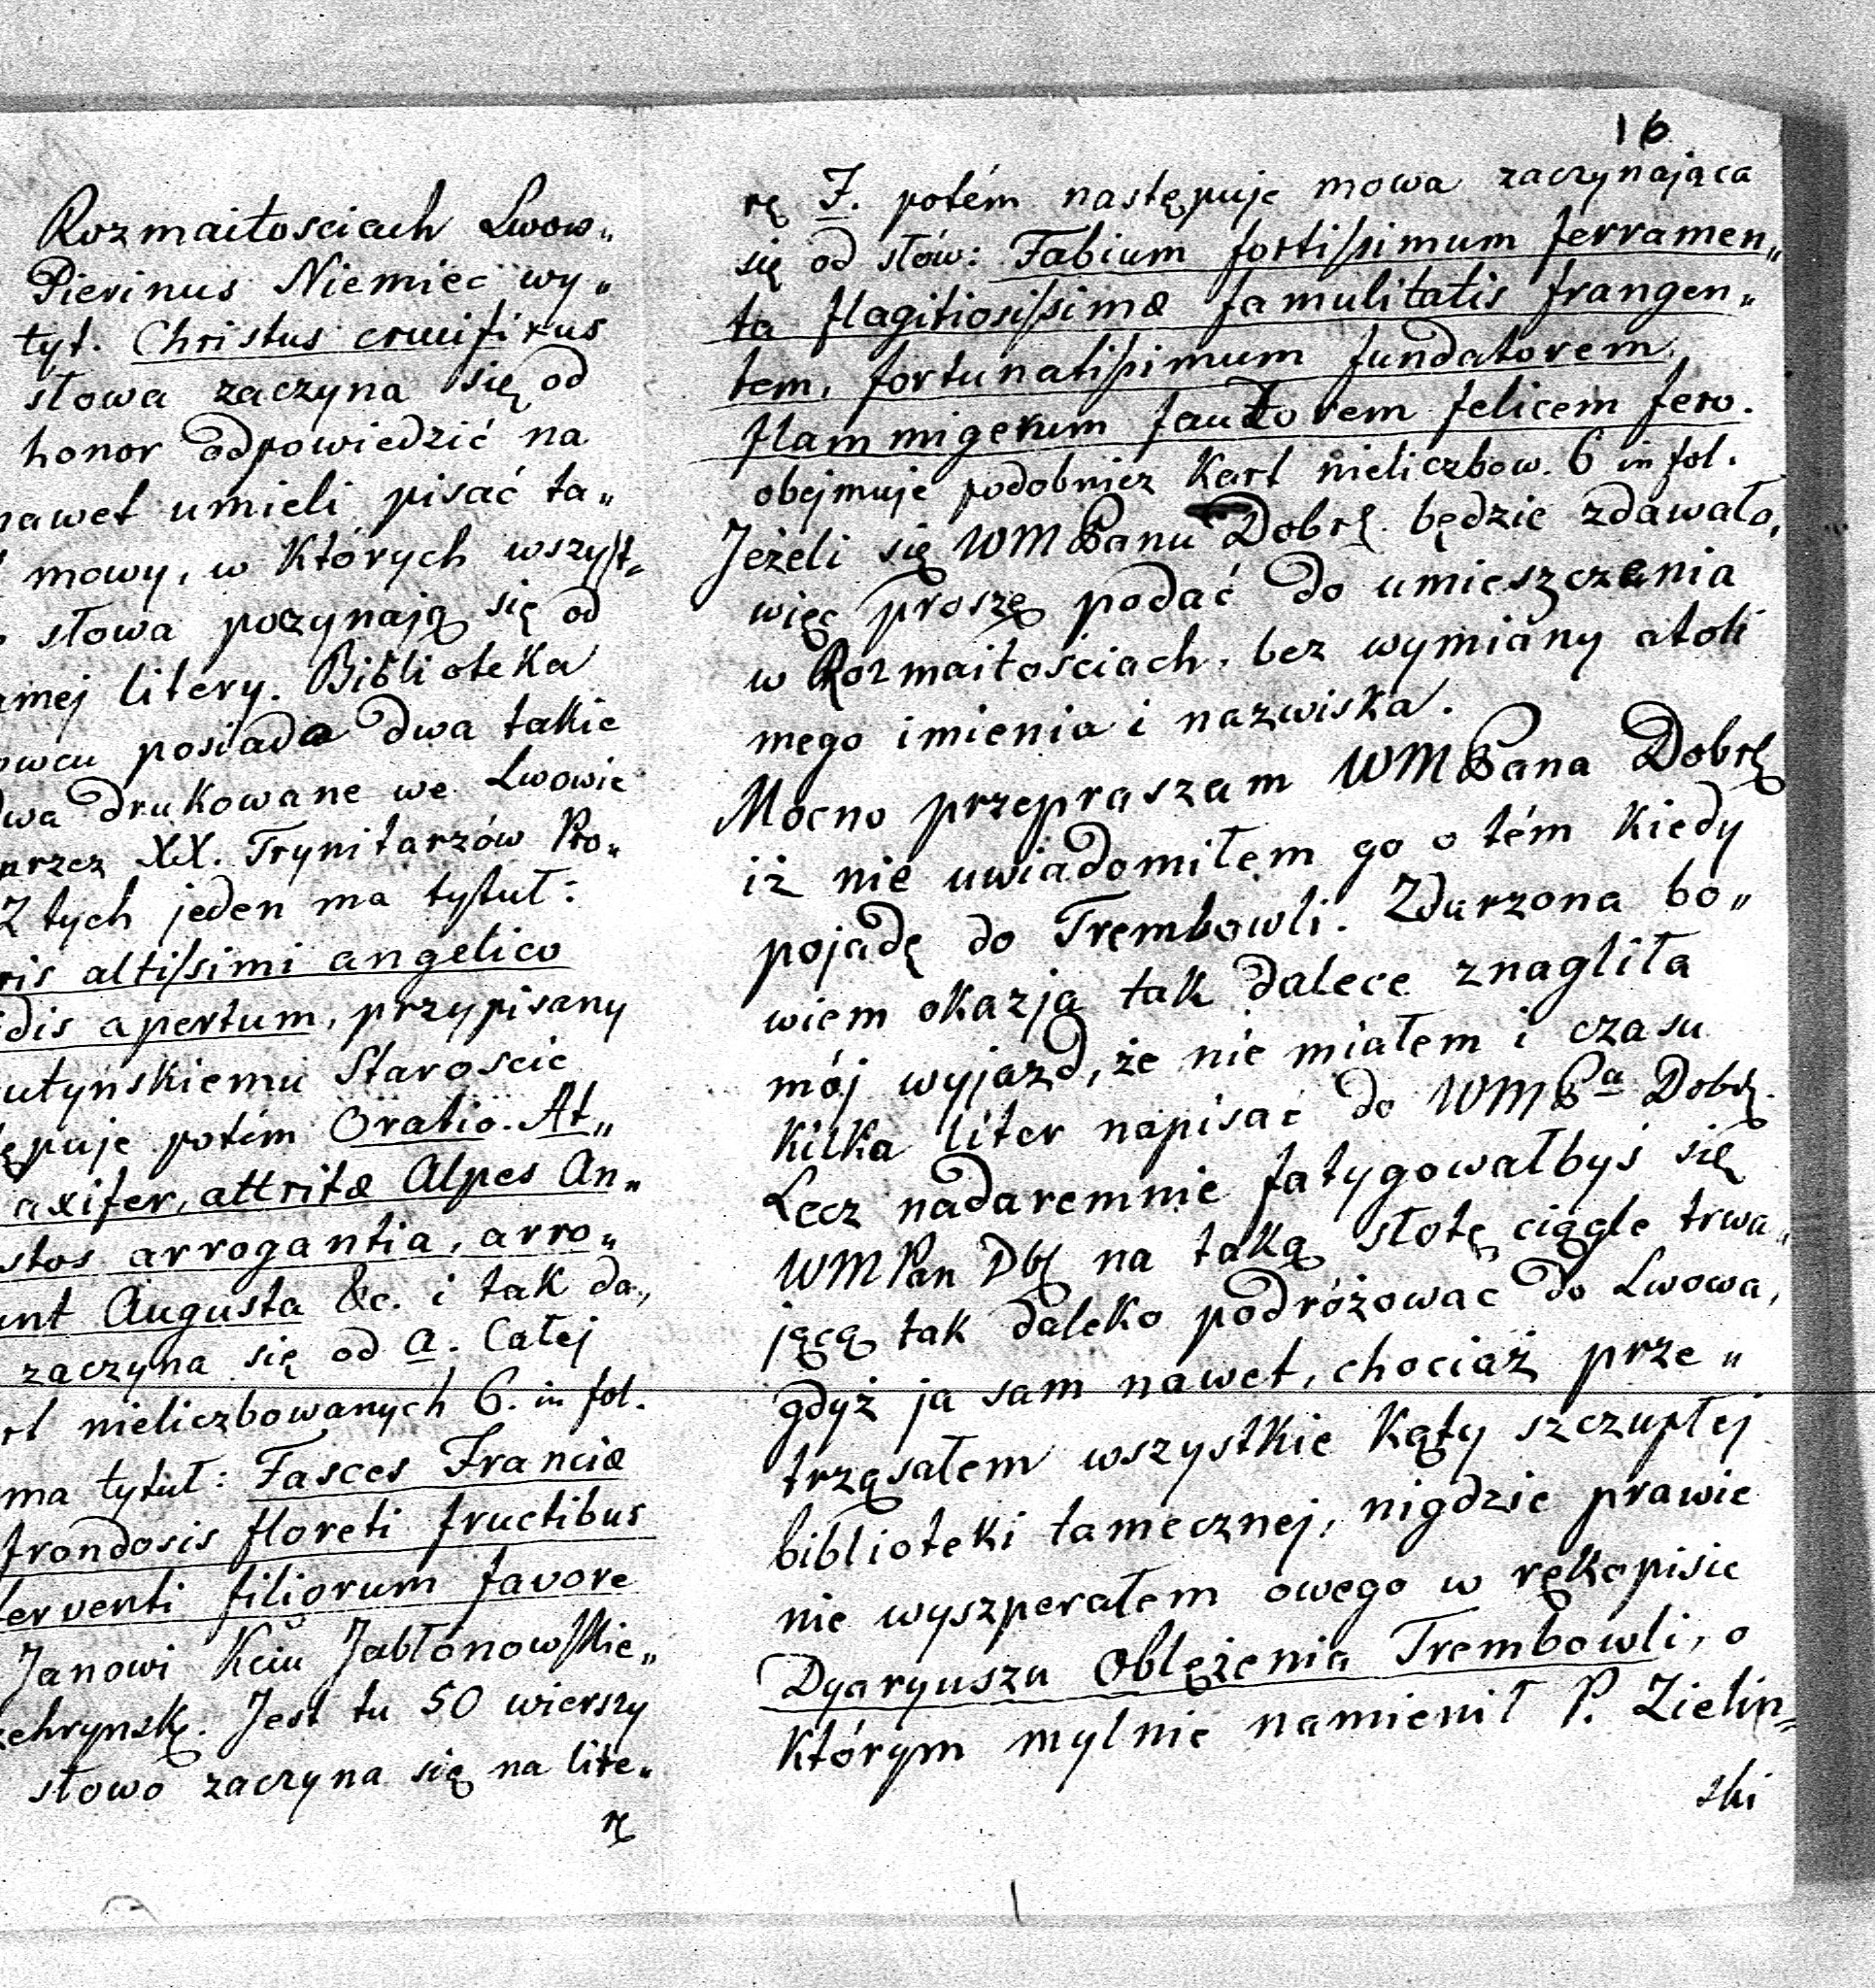 Rozmaitosciach Lwow„
Pierinus Niemiec wy„
tyt. Christus crucifixus
słowa zaczyna się od
honor odpowiedzić na
nawet umieli pisać ta„
mowy, w których wszyst„
słowa poczynają się od
amej litery. Biblioteka
owcu posiada dwa takie
dwa drukowane we Lwowie
przez XX. Trynitarzów Ro„
Z tych jeden ma tytuł:
ris altissimi angelico
idis apertum, przypisany
utyńskiemu Staroscie
ępuje potém Oratio. At„
axifer, attritæ Alpes An„
stos arrogantia, arro„
unt Augusta &c. i tak da„
zaczyna się od a. Całej
rt nieliczbowanych 6. in fol.
ma tytuł: Fasces Franciæ
frondosis floreti fructibus
ferventi filiorum favore
Janowi Kciu Jabłonowskie„
zehrynsk. Jest tu 50 wierszy
słowo zaczyna się na lite„
rę
16
rę F. potém następuje mowa zaczynająca
się od słów: Fabium fortissimum ferramen„
ta flagitiosissimæ famulitatis frangen„
tem, fortunatissimum fundatorem,
flammigerum fautorem felicem fero.
obejmuje podobnież kart nieliczbow. 6 in fol.
Jeżeli się WMPanu Dobrę. będzie zdawało,
więc proszę podać do umieszczenia
w Rozmaitościach, bez wymiany atoli
mego imienia i nazwiska.
Mocno przepraszam WMPana Dobrę
iż nie uwiadomiłem go o tém kiedy
pojadę do Trembowli. Zdarzona bo„
wiem okazja tak dalece znagliła
mój wyjazd, że nie miałem i czasu
kilka liter napisać do WMPa Dobę.
Lecz nadaremnie fatygowałbyś się
WMPan Dbę na taką słotę ciągle trwa„
jącą tak daleko podróżować do Lwowa,
gdyż ja sam nawet, chociaż prze„
trząsałem wszystkie kąty szczupłej
biblioteki tamecznej, nigdzie prawie
nie wyszperałem owego w rękopisie
Dyaryuszu Oblężenia Trembowli, o
którym mylnie namienił P. Zieliń„
ski